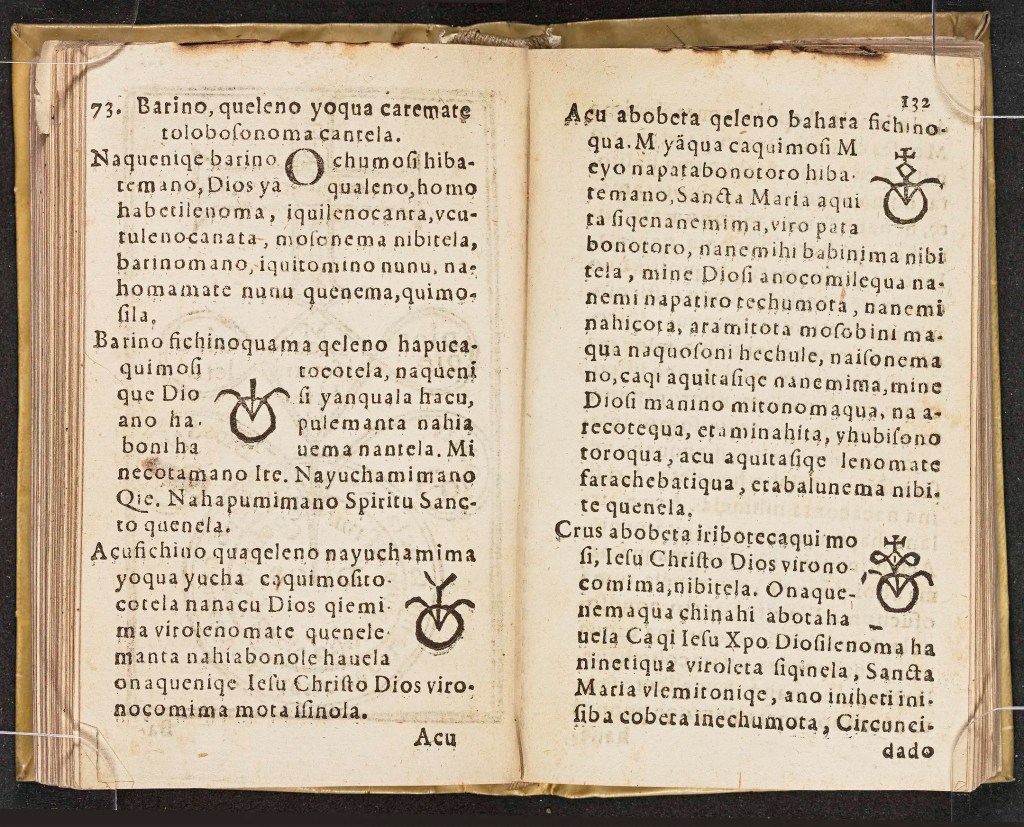 73. Barino, queleno yoqua caremate
toloboſonoma cantela.
Naqueniqe barino Ochumoſi hiba-
temano, Dios yä qualeno, homo
habetilenoma, iquilenocanta, vcu-
tulenocanata, moſonema nibitela,
barinomano, iquitomino nunu, na-
homamate nunu quenema, quimo-
ſila.
Barino fichinoquama qeleno hapuca-
quimoſi tocotela, naqueni
que Dio ſi yanquala hacu,
ano ha- pulemanta nahia
boni ha uema nantela. Mi
necotamano Ite. Nayuchamimano
Qie. Nahapumimano Spiritu Sanc-
to quenela.
Açufichino quaqeleno nayuchamima
yoqua yucha caquimoſito-
cotela nanacu Dios qiemi-
ma virolenomate quenele-
manta nahiabonole hauela
onaqueniqe Ieſu Chriſto Dios viro-
noçomima mota iſinola.
Acu
132
Açu abobeta qeleno bahara fichino-
qua. M yäqua caquimoſi M
eyo napatabonotoro hiba-
temano, Sancta Maria aqui
ta ſiqenanemima, viro pata
bonotoro, nanemihi babinima nibi
tela, mine Dioſi anocomilequa na-
nemi napatiro techumota, nanemi
nahicota, aramitota moſobini ma-
qua naquoſoni hechule, naiſonema
no, caqi aquitaſiqe nanemima, mine
Dioſi manino mitonomaqua, na a-
recotequa, etaminahita, yhubiſono
toroqua, acu aquitaſiqe lenomate
farachebatiqua, etabalunema nibi-
te quenela.
Crus abobeta iribotecaqui mo
ſi, Ieſu Chriſto Dios virono-
comima, nibitela. Onaque-
nemaqua chinahi abotaha
uela Caqi Ieſu Xpo Dioſilenoma ha
ninetiqua viroleta ſiqinela, Sancta
Maria vlemitoniqe, ano iniheti ini-
ſiba cobeta inechumota, Circunci-
dado